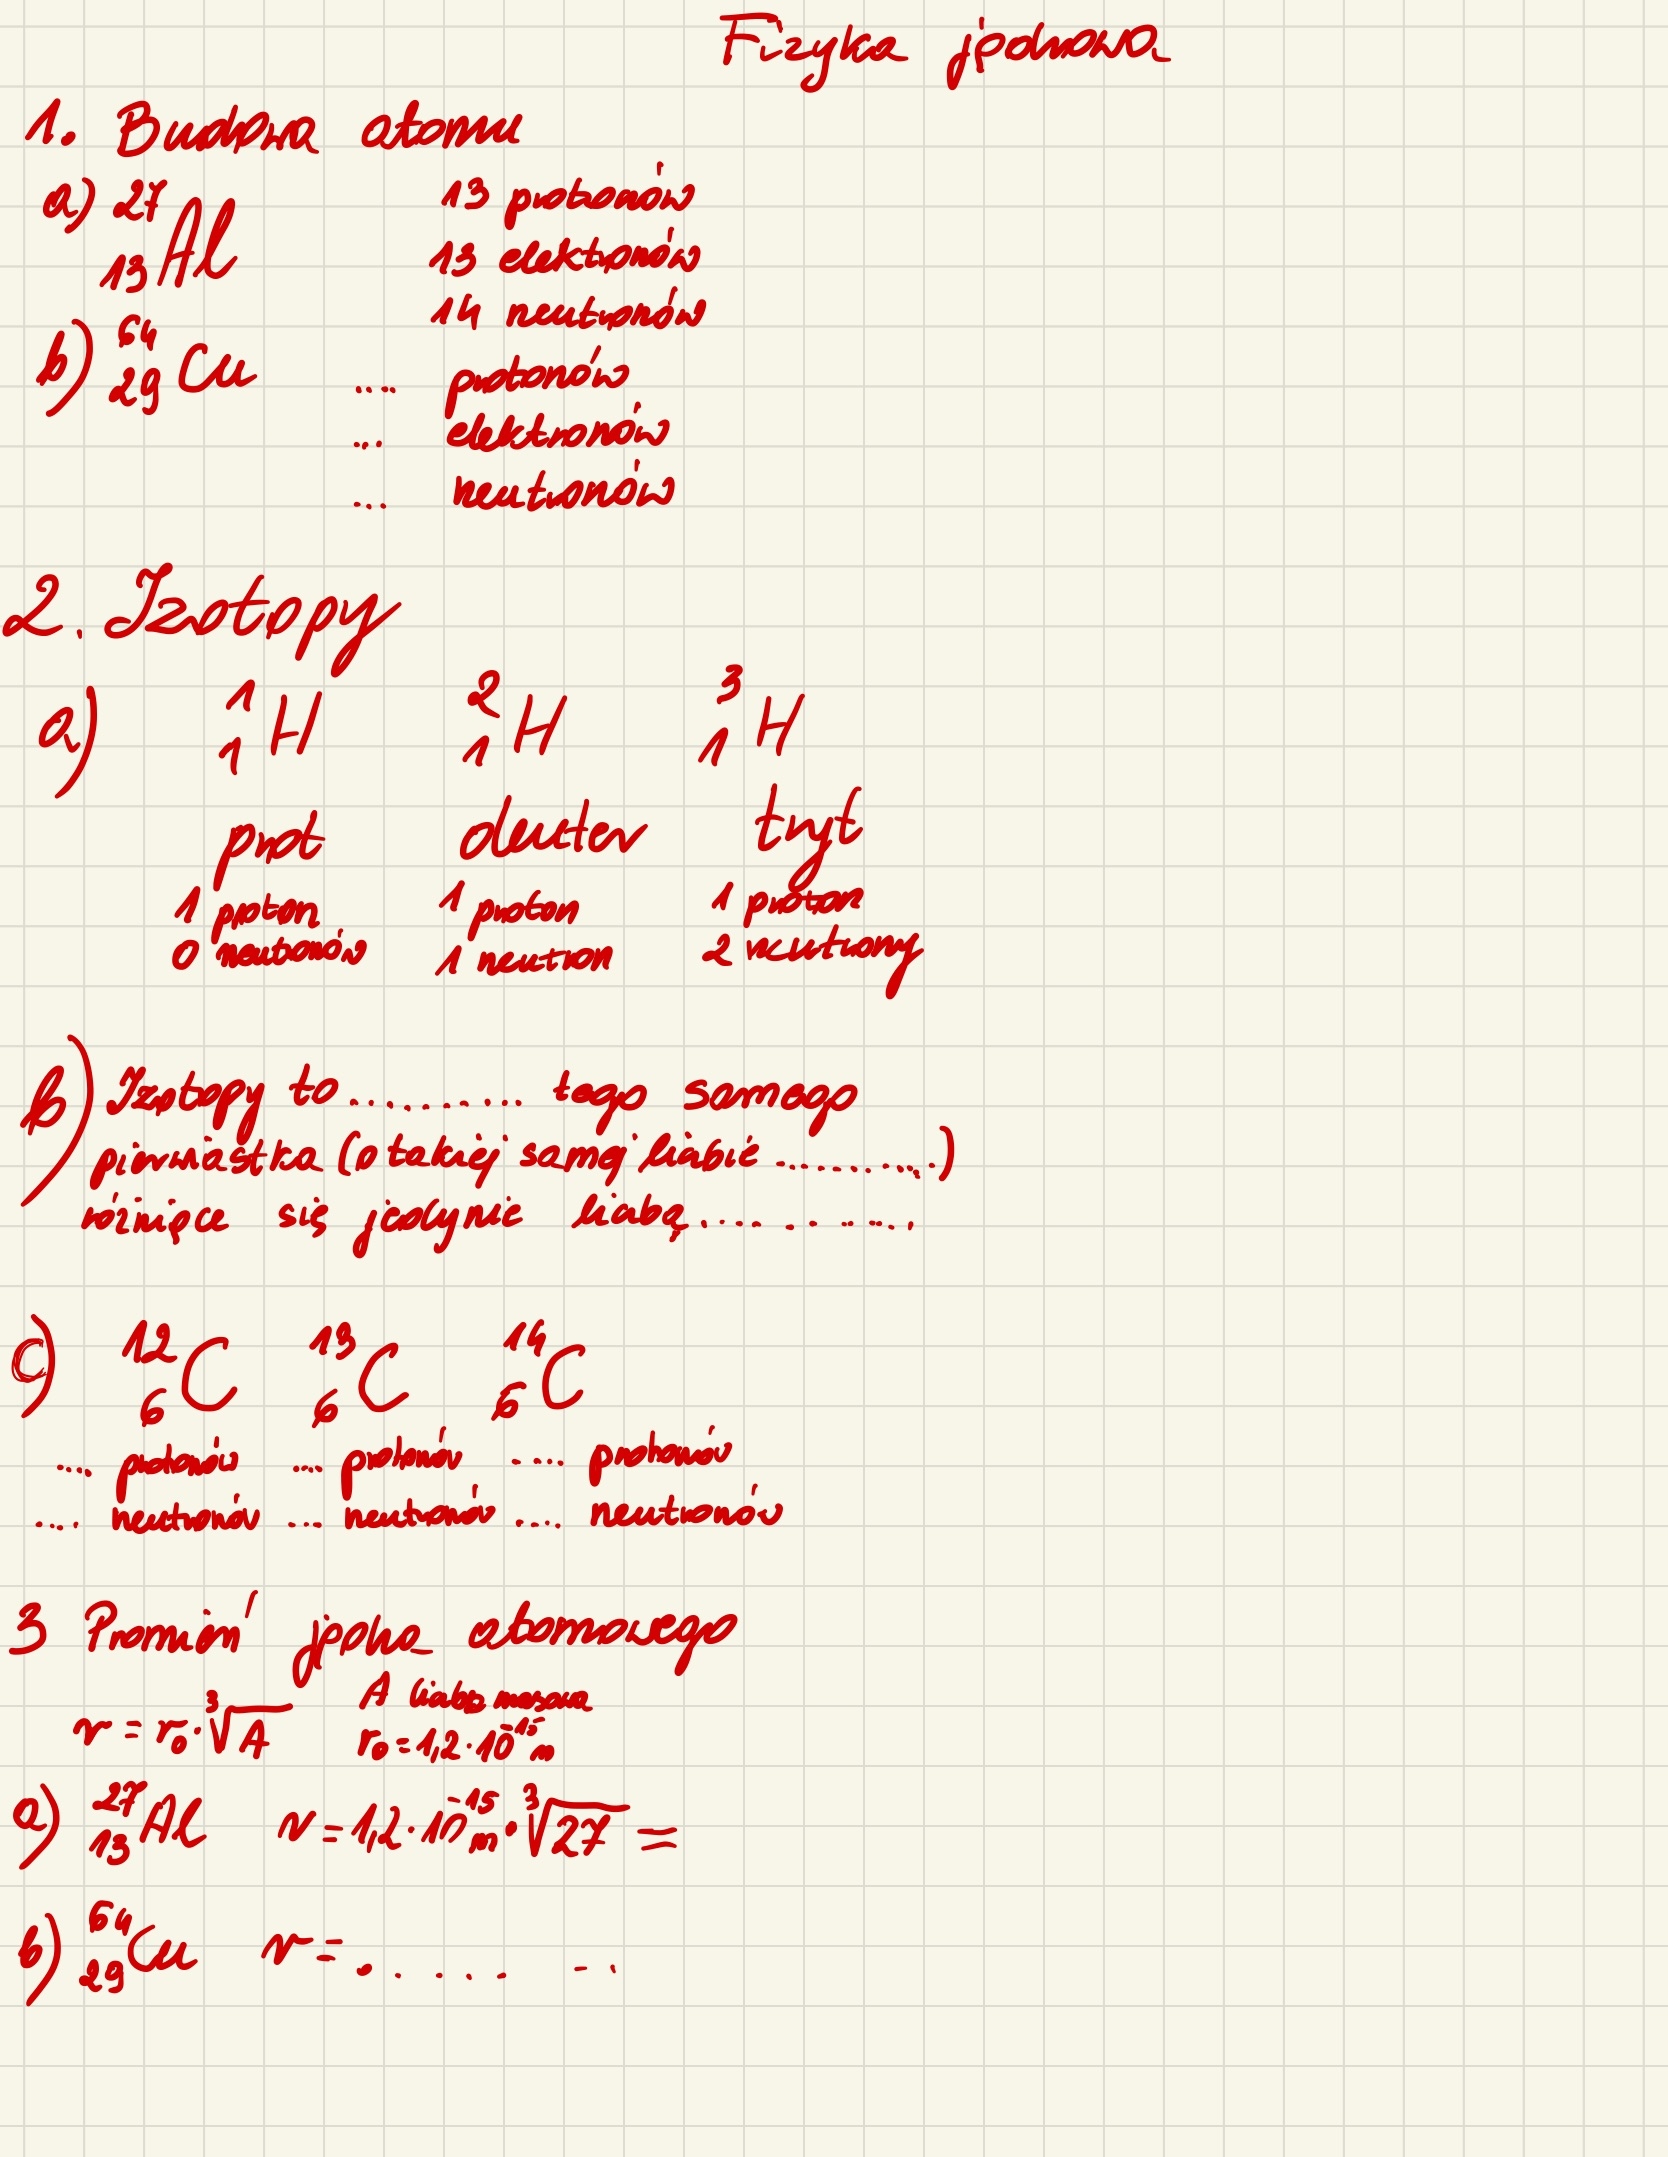 Fizyka jądrowa
1. Budowa atomu
a) ²⁷₁₃Al 13 protonów
13 elektronów
14 neutronów
b) ⁶⁴₂₉Cu .... protonów
... elektronów
... neutronów
2. Izotopy
a) ¹₁H ²₁H ³₁H
prot deuter tryt
1 proton 1 proton 1 proton
0 neutronów 1 neutron 2 neutrony
b) Izotopy to .......... tego samego
pierwiastka (o takiej samej liczbie ...........)
różniące się jedynie liczbą ..........
c) ¹²₆C ¹³₆C ¹⁴₆C
.... protonów .... protonów .... protonów
.... neutronów ... neutronów .... neutronów
3 Promień jądra atomowego
r = r₀·∛A A liczba masowa
r₀ = 1,2·10⁻¹⁵ m
a) ²⁷₁₃Al r = 1,2·10⁻¹⁵ m · ∛27 =
b) ⁶⁴₂₉Cu r = . . . . . . .